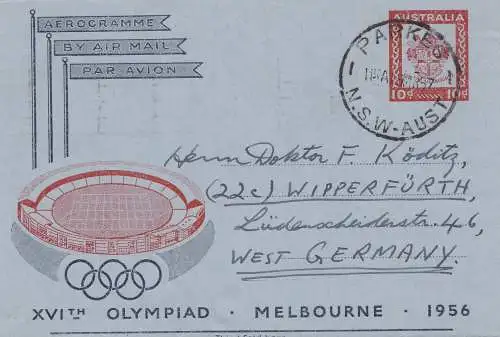 AEROGRAMME
BY AIR MAIL
PAR AVION
AUSTRALIA
10d 10d
PARKES
N.S.W-AUST
Herrn Doktor F. Köditz,
(22c) WIPPERFÜRTH,
Lüdenscheiderstr. 46,
WEST GERMANY.
XVITH OLYMPIAD · MELBOURNE · 1956